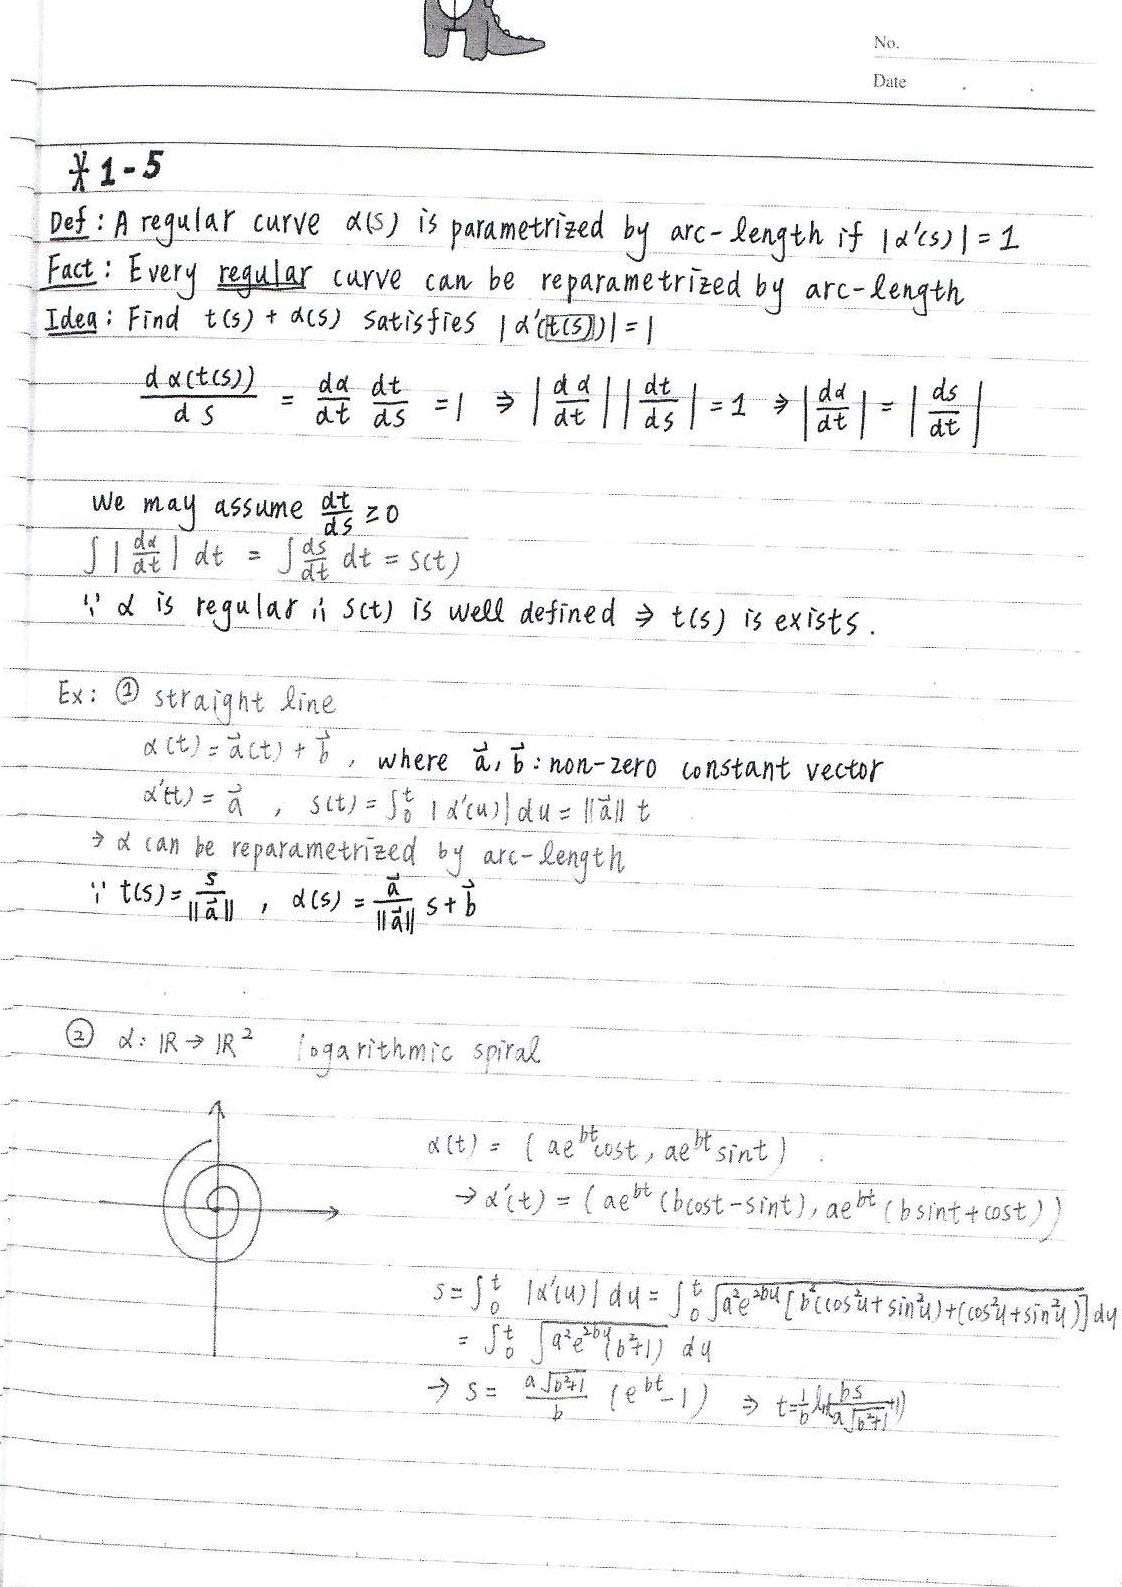 No.
Date
* 1-5
Def: A regular curve α(s) is parametrized by arc-length if |α'(s)| = 1
Fact: Every regular curve can be reparametrized by arc-length
Idea: Find t(s) + α(s) satisfies |α'(t(s))| = 1
dα(t(s))/ds = dα/dt dt/ds = 1 ⇒ |dα/dt| |dt/ds| = 1 ⇒ |dα/dt| = |ds/dt|
We may assume dt/ds ≥ 0
∫ |dα/dt| dt = ∫ ds/dt dt = s(t)
∵ α is regular ∴ s(t) is well defined ⇒ t(s) is exists.
Ex: ① straight line
α(t) = a⃗(t) + b⃗, where a⃗, b⃗ : non-zero constant vector
α'(t) = a⃗ , s(t) = ∫₀ᵗ |α'(u)| du = ||a⃗|| t
→ α can be reparametrized by arc-length
∵ t(s) = s/||a⃗|| , α(s) = a⃗/||a⃗|| s + b⃗
② α: ℝ → ℝ² logarithmic spiral
α(t) = (ae^{bt}cost, ae^{bt}sint)
→ α'(t) = (ae^{bt}(bcost-sint), ae^{bt}(bsint+cost))
s = ∫₀ᵗ |α'(u)| du = ∫₀ᵗ √(a²e^{2bu}[b²(cos²u+sin²u)+(cos²u+sin²u)]) du
= ∫₀ᵗ √(a²e^{2bu}(b²+1)) du
→ s = a√(b²+1)/b (e^{bt}-1) ⇒ t = 1/b ln(bs/(a√(b²+1)) +1)